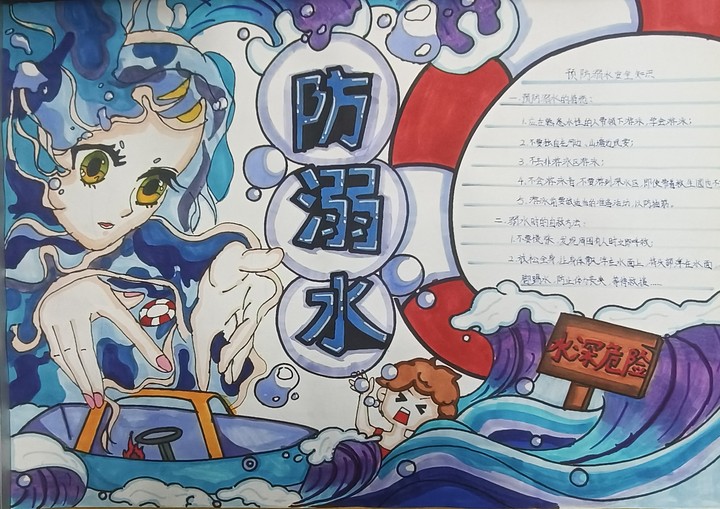 防
溺
水
预防溺水安全知识
一.预防溺水的自救:
1.应在熟悉水性的人带领下游水,学会游泳;
2.不要独自在河边、山塘边玩耍;
3.不去非游泳区游泳;
4.不会游泳者,不要游到深水区,即使带着救生圈也不
5.游泳前要做适当的准备活动,以防抽筋。
二.溺水时的自救方法:
1.不要慌张,发现周围有人时立即呼救;
2.放松全身,让身体飘浮在水面上,将头部浮出水面
脚踢水,防止体力丧失,等待救援……
水深危险